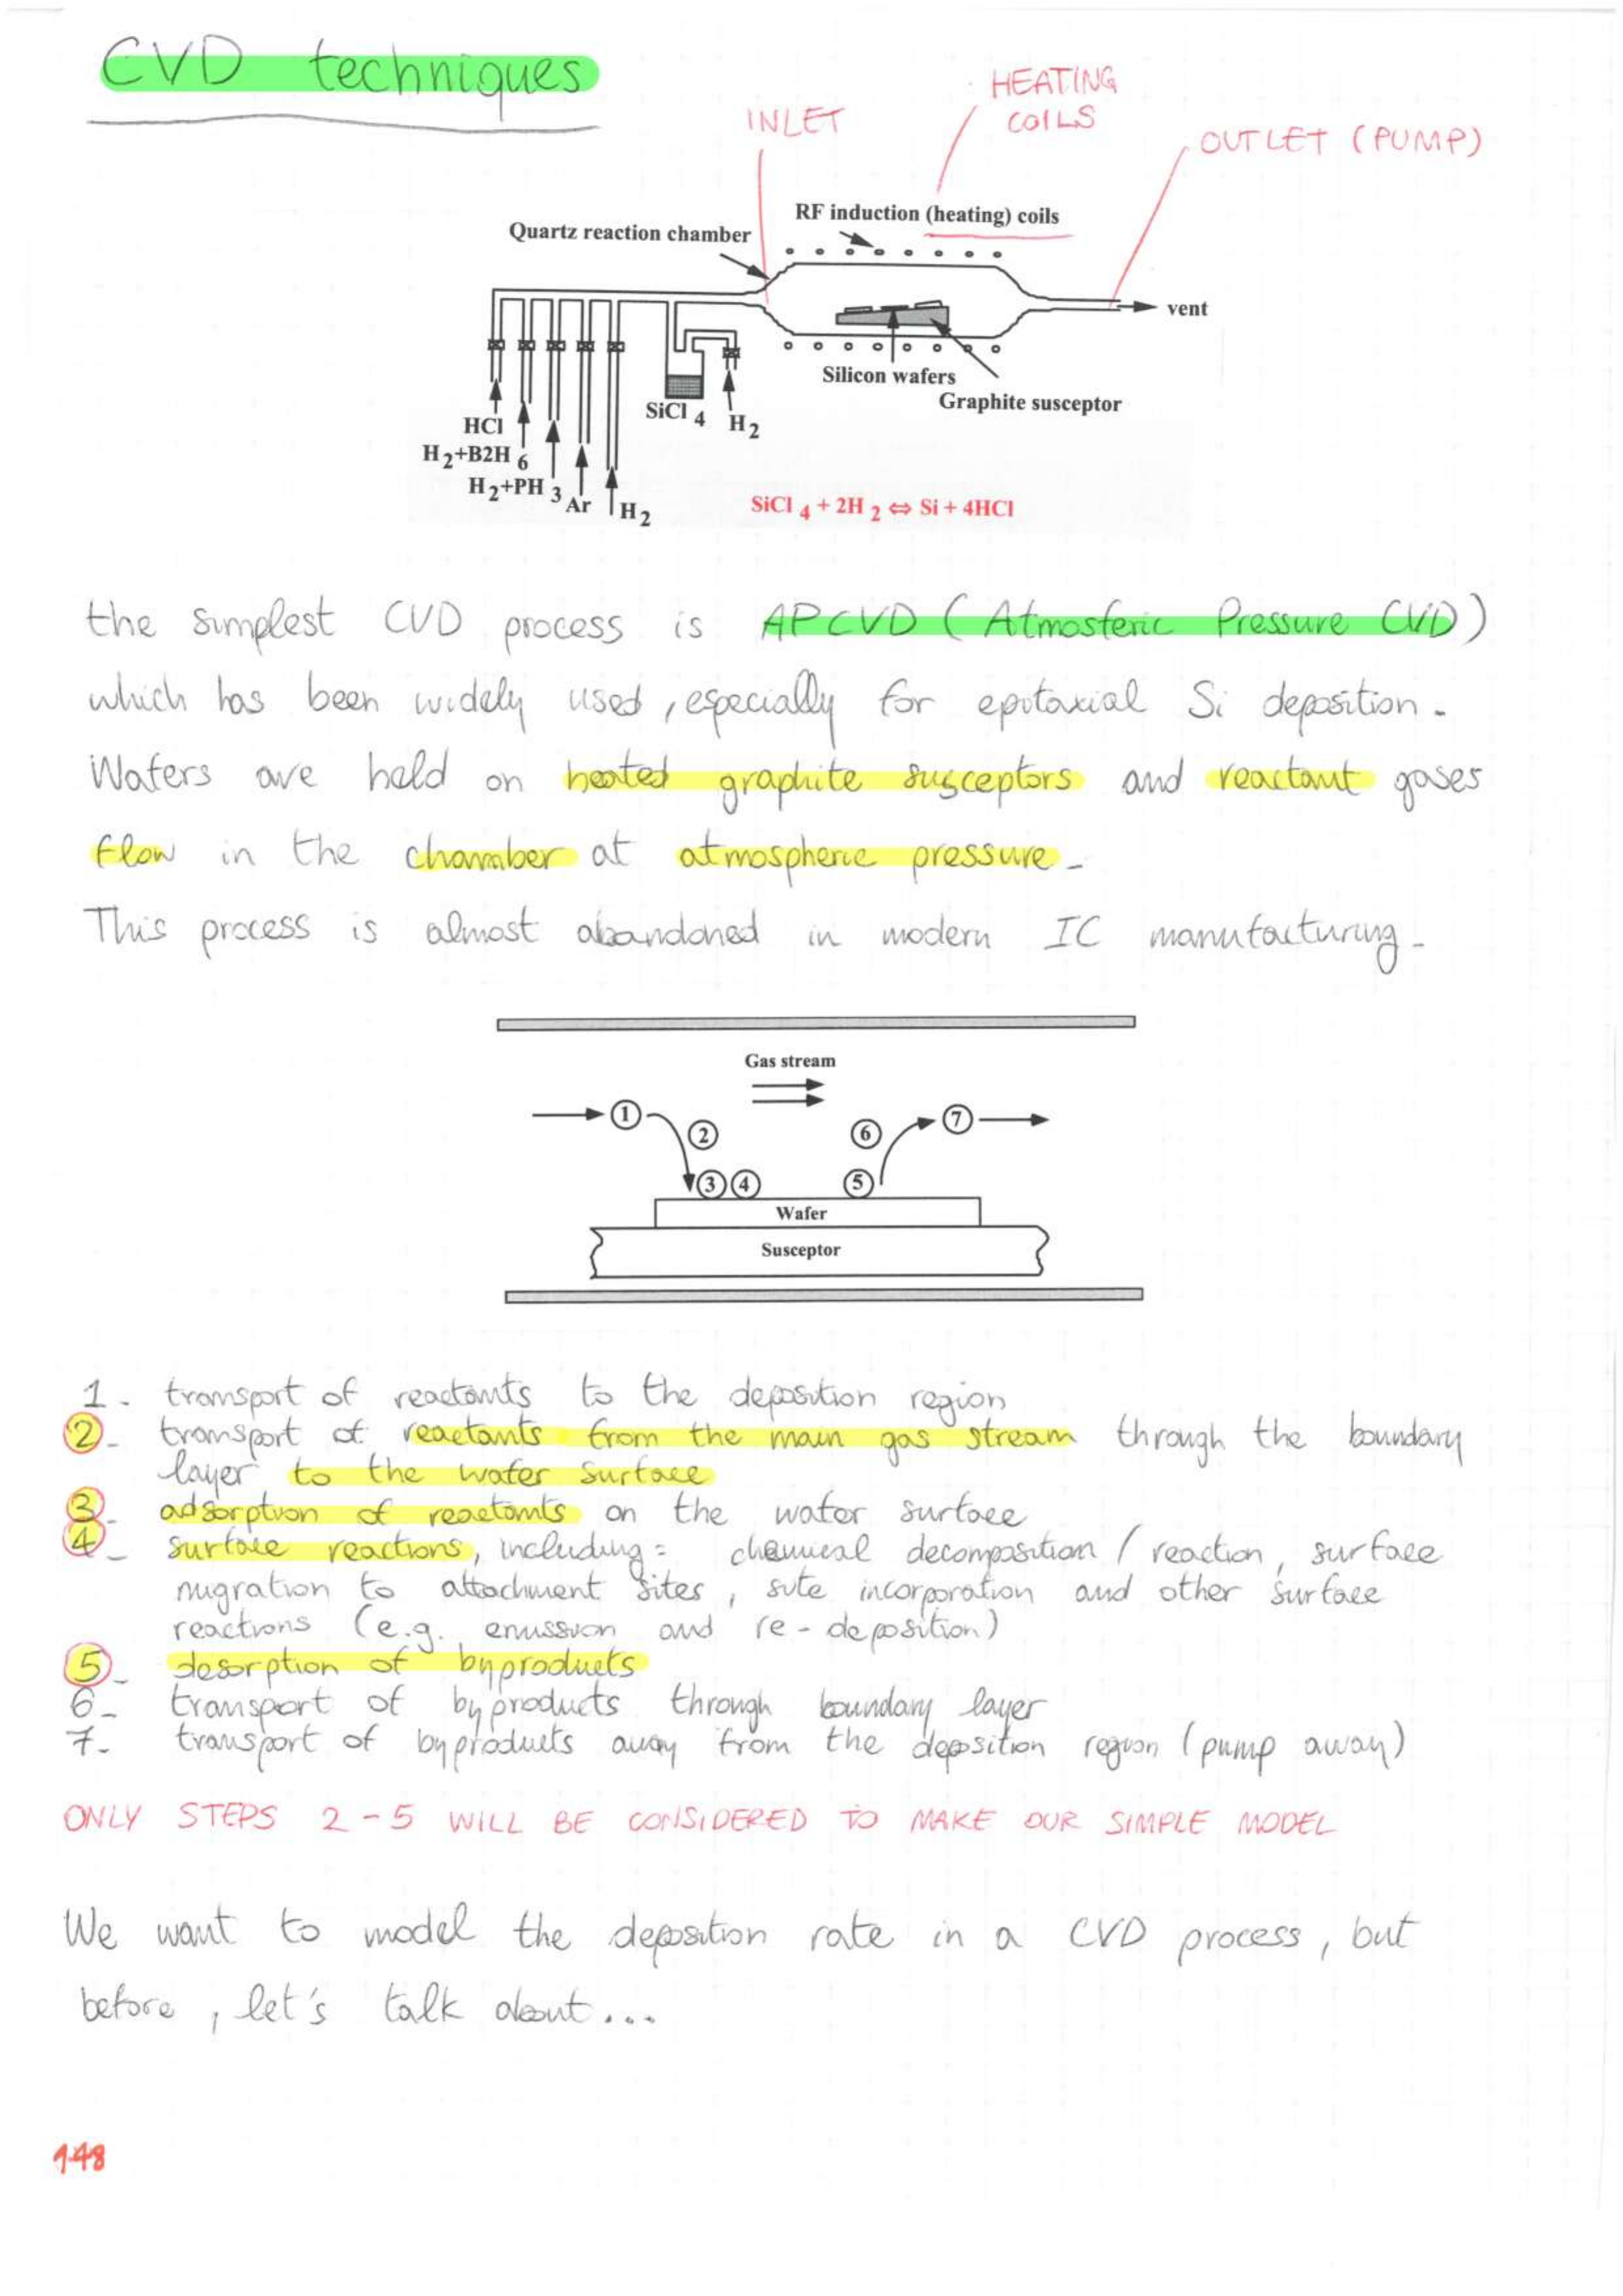 CVD techniques
HEATING
COILS
INLET
OUTLET (PUMP)
RF induction (heating) coils
Quartz reaction chamber
vent
Silicon wafers
Graphite susceptor
SiCl 4
H 2
HCl
H 2+B2H 6
H 2+PH 3
Ar
H 2
SiCl 4 + 2H 2 ⇔ Si + 4HCl
the simplest CVD process is APCVD (Atmosferic Pressure CVD)
which has been widely used, especially for epitaxial Si deposition.
Wafers are held on heated graphite susceptors and reactant gases
flow in the chamber at atmospheric pressure.
This process is almost abandoned in modern IC manufacturing.
Gas stream
1
2
3
4
5
6
7
Wafer
Susceptor
1. transport of reactants to the deposition region
2. transport of reactants from the main gas stream through the boundary
layer to the wafer surface
3. adsorption of reactants on the wafer surface
4. surface reactions, including: chemical decomposition / reaction, surface
migration to attachment sites, site incorporation and other surface
reactions (e.g. emission and re-deposition)
5. desorption of byproducts
6. transport of byproducts through boundary layer
7. transport of byproducts away from the deposition region (pump away)
ONLY STEPS 2-5 WILL BE CONSIDERED TO MAKE OUR SIMPLE MODEL
We want to model the deposition rate in a CVD process, but
before, let's talk about...
148